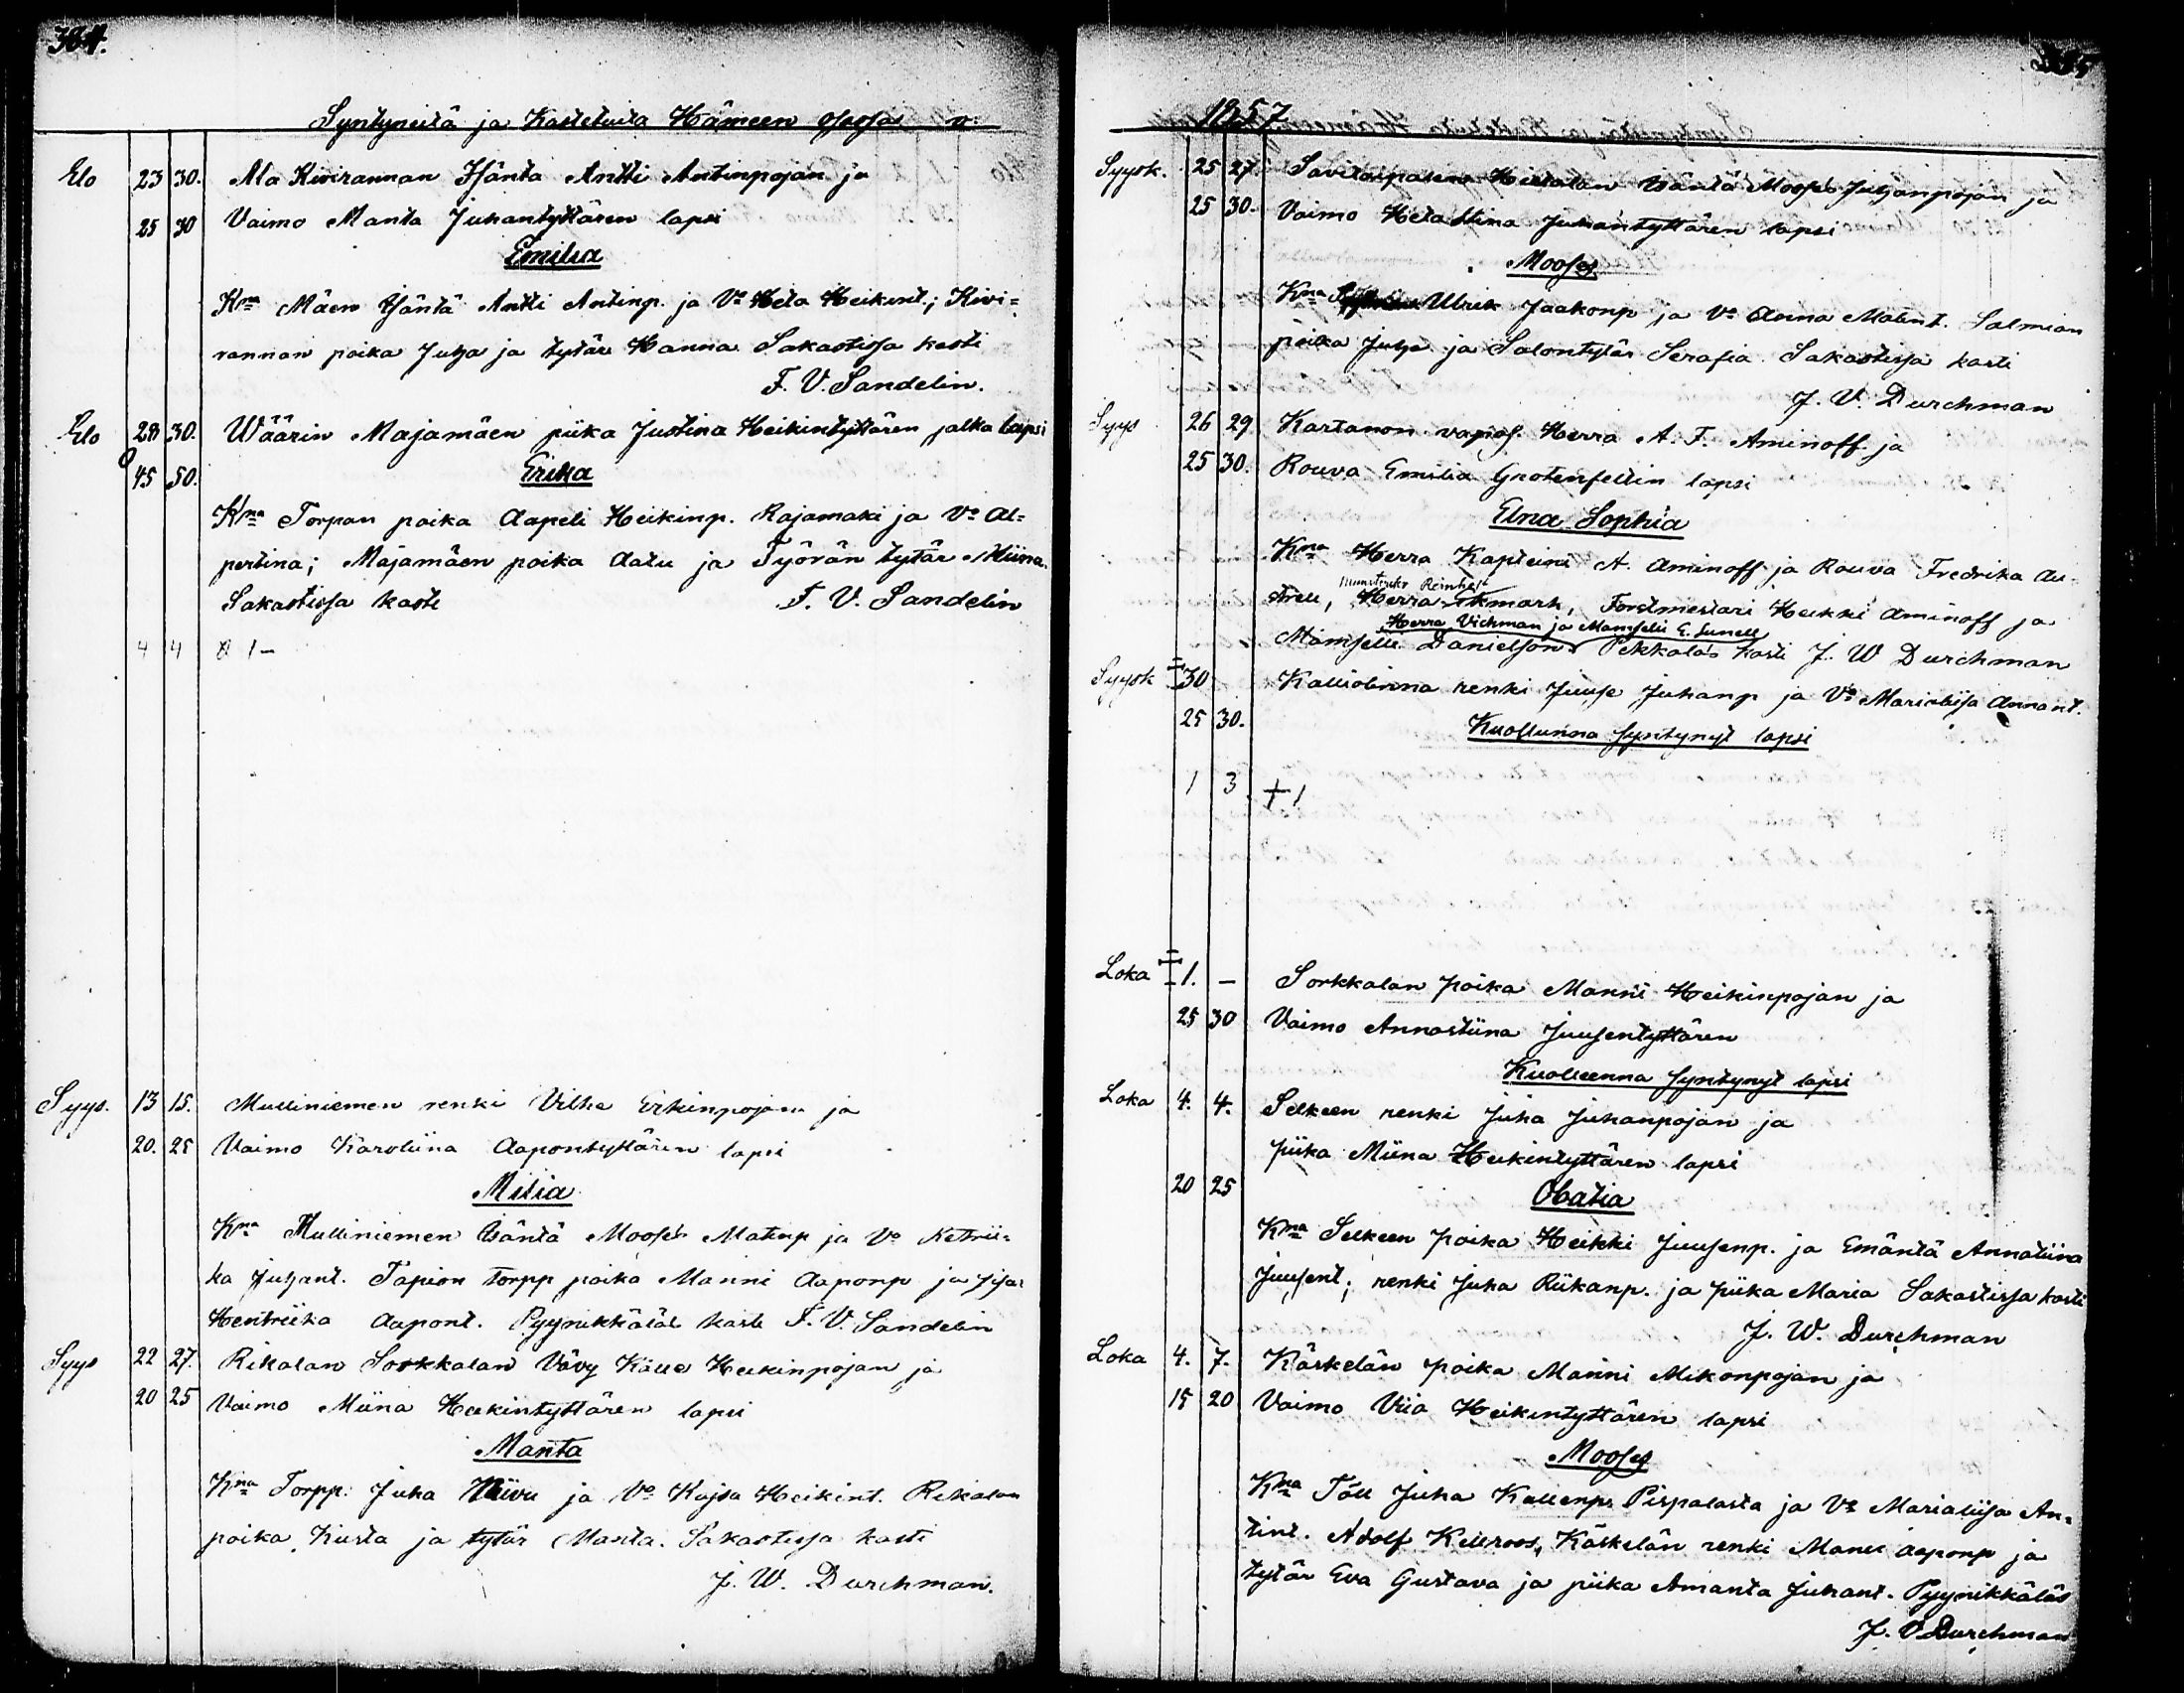 384.
Syntyneitä ja Kastetuita Hämeen osasas v:
Elo 23 30. Ala Kivirannan Isäntä Antti Antinpojan ja
25 30 Vaimo Manta Juhantyttären lapsi
Emilia
Kna Mäen Isäntä Antti Antinp. ja Vo Heta Heikint.; Kivi=
rannan poika Juha ja tytär Hanna. Sakastissa kasti
F. V. Sandelin.
Elo 28 30. Wäärin Majamäen piika Justina Heikintyttären jalka lapsi
45 50. Erika
Kna Torpan poika Aapeli Heikinp. Rajamäki ja Vo Al=
pertina; Majamäen poika Aatu ja Työrän tytär Miina.
Sakastissa kasti F. V. Sandelin
4 4 8 1 –
Syys. 13 15. Mulliniemen renki Vilhe Erkinpojan ja
20. 25 Vaimo Karoliina Aapontyttären lapsi
Milia
Kna Mulliniemen Isäntä Mooses Matinp ja Vo Ketrii=
ka Juhant. Tapion torpp poika Manni Aaponp ja sisar
Hentriika Aapont. Pyynikkäläs kasti F. V. Sandelin
Syys 22 27. Rikalan Sorkkalan Vävy Källe Heikinpojan ja
20 25 Vaimo Miina Heikintyttären lapsi
Manta
Kna Torpp. Juha Kiivu ja Vo Kajsa Heikint. Rikalan
poika Kusta ja tytär Manta. Sakastissa kasti
J. W. Durchman.
1857
Syysk. 25 27. Savitaipaleen Hietalan Isäntä Mooses Juhanpojan ja
25 30. Vaimo Hetastina Juhantyttären lapsi
Mooses
Kna Ulrik Jaakonp ja Vo Anna Matint. Salmian
poika Juha ja Salontytär Serafia. Sakastissa kasti
J. V. Durchman
Syys 26 29 Kartanon Herra A. F. Aminoff ja
25 30. Rouva Emilia Grotenfeltin lapsi
Elna Sophia
Kna Herra Kapteini A. Aminoff ja Rouva Fredrika
Herra Ekmark, Forstmestari Heikki Aminoff ja
Herra Vichman ja Mamselli E. Lunell
Mamselli Danielson Pekkalas kasti J. W Durchman
Syysk 30 Kalliolinna renki Juuse Juhanp ja Vo Marialiisa Annant.
25 30. Kuollunna syntynyt lapsi
1 3 † 1
Loka 1. – Sorkkalan poika Manni Heikinpojan ja
25 30 Vaimo Annastiina Juusentyttären
Kuolleenna syntynyt lapsi
Loka 4. 4. Selkeen renki Juha Juhanpojan ja
piika Miina Heikintyttären lapsi
20 25 Obatia
Kna Selkeen poika Heikki Juusenp. ja Emäntä Annatiina
Juusent; renki Juha Riikanp. ja piika Maria Sakastissa kasti
J. W. Durchman
Loka 4. 7. Käskelän poika Manni Mikonpojan ja
15 20 Vaimo Viia Heikintyttären lapsi
Mooses
Kna Töll Juha Kallenp. Pispalasta ja Vo Marialiisa An=
tint. Adolf Kellroos, Käskelän renki Manu Aaponp ja
tytär Eva Gustava ja piika Amanta Juhant. Pyynikkäläs
J. V Durchman